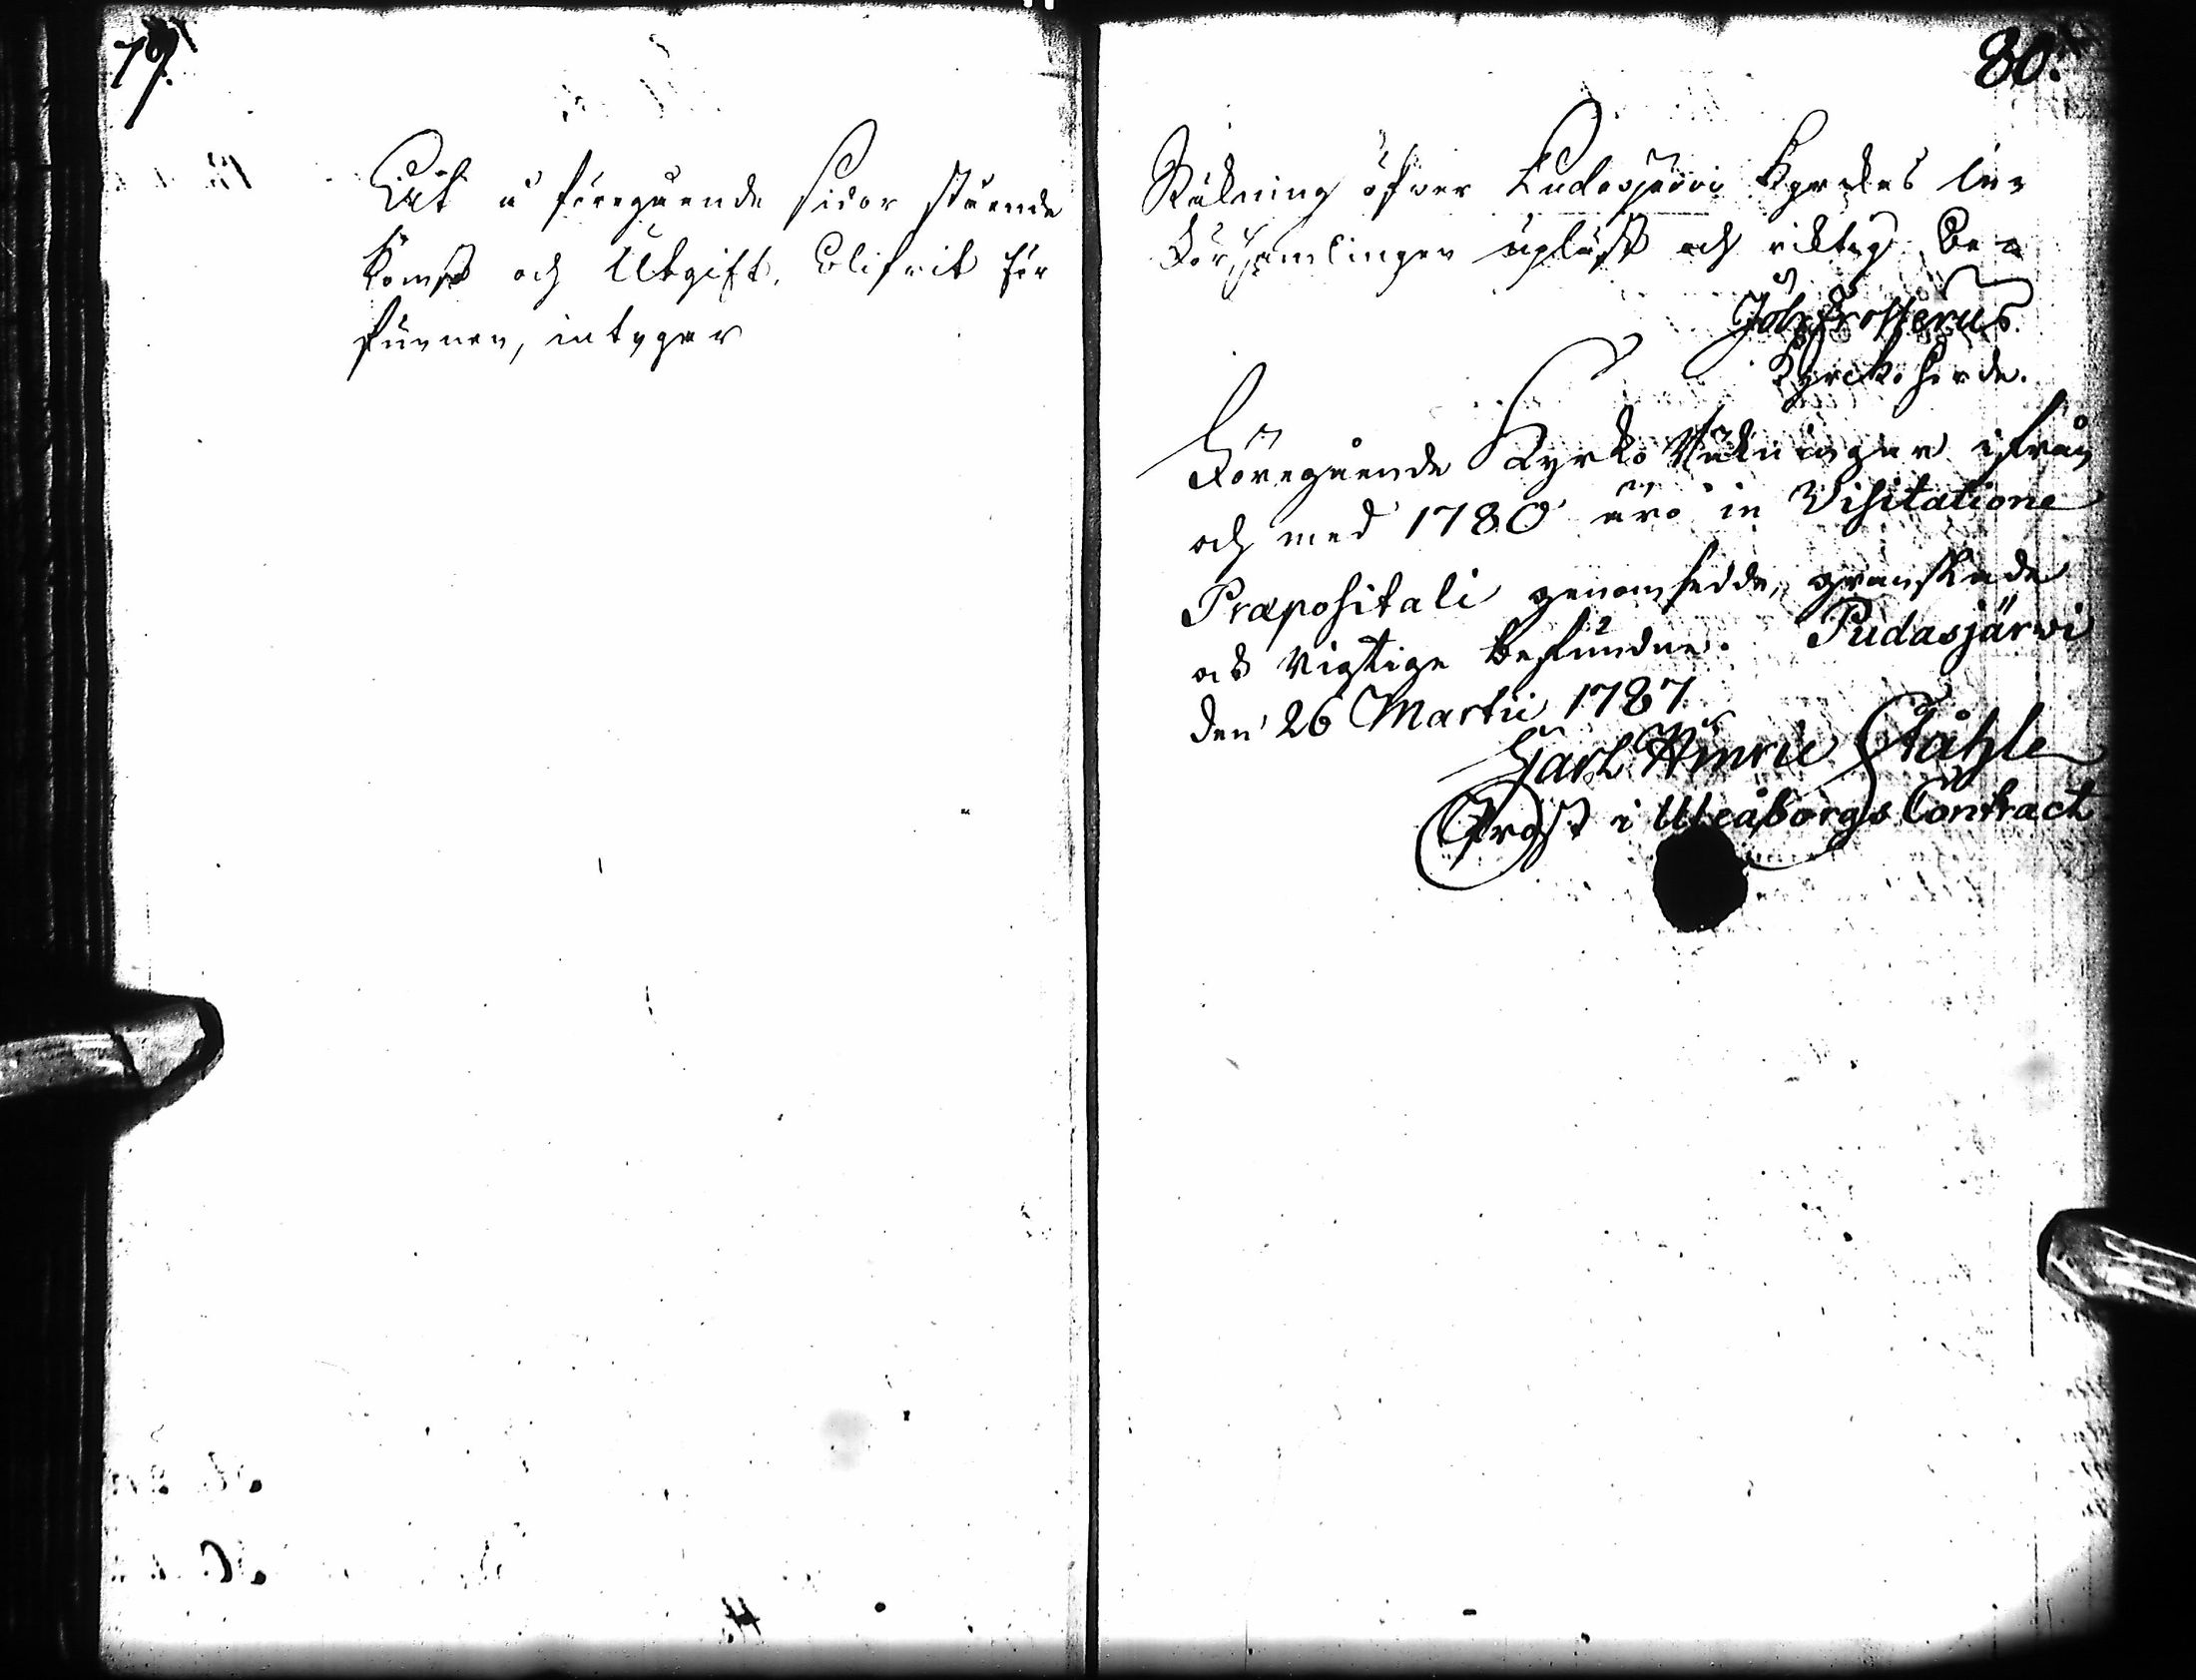 79.
Att å föregående sidor stående
Komst och Utgift, blifvit för
funnen, intygar
80.
Räkning öfver Pudasjärvi Kyrckas In=
Församlingen upläst och riktig be=
Joh. Frosterus.
Kyrckoherde.
Föregående Kyrko Räkningar ifrån
och med 1780 äro in Visitatione
Præpositali genomsedde, granskade
och Rigtige befundne. Pudasjärwi
den 26 Martii 1787
Carl Hinric Ståhle
Prost i Uleåborgs Contract